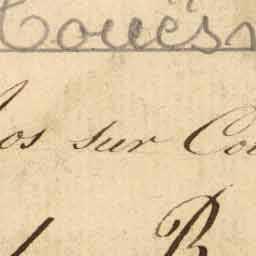 Couës
os sur Cou
R